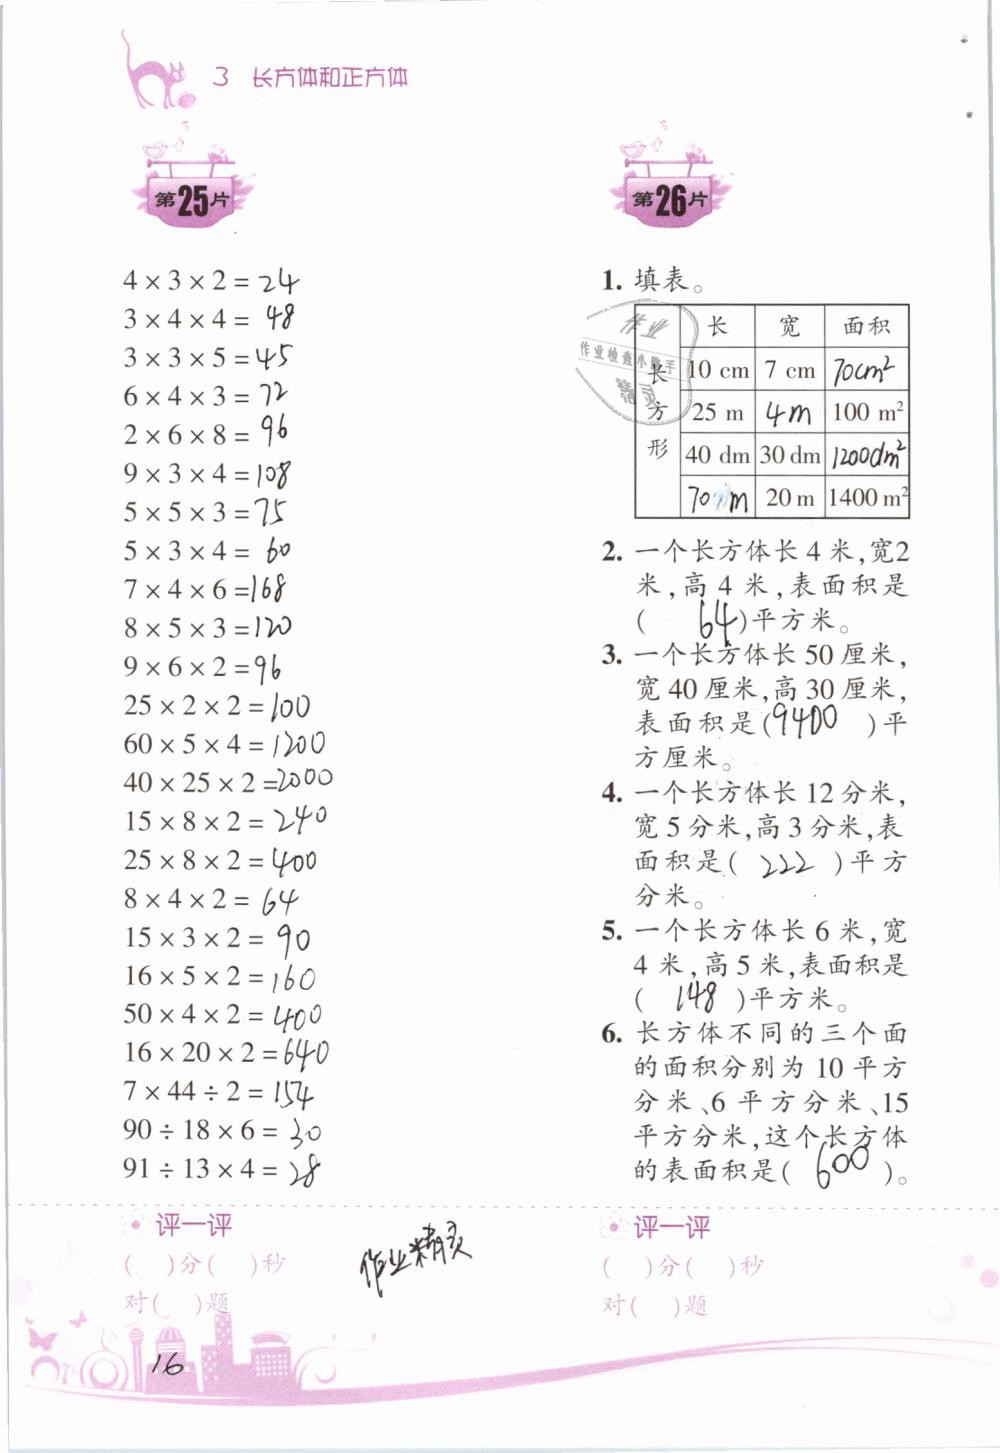 3 长方体和正方体
第25片
4 × 3 × 2 = 24
3 × 4 × 4 = 48
3 × 3 × 5 = 45
6 × 4 × 3 = 72
2 × 6 × 8 = 96
9 × 3 × 4 = 108
5 × 5 × 3 = 75
5 × 3 × 4 = 60
7 × 4 × 6 = 168
8 × 5 × 3 = 120
9 × 6 × 2 = 96
25 × 2 × 2 = 100
60 × 5 × 4 = 1200
40 × 25 × 2 = 2000
15 × 8 × 2 = 240
25 × 8 × 2 = 400
8 × 4 × 2 = 64
15 × 3 × 2 = 90
16 × 5 × 2 = 160
50 × 4 × 2 = 400
16 × 20 × 2 = 640
7 × 44 ÷ 2 = 154
90 ÷ 18 × 6 = 30
91 ÷ 13 × 4 = 28
评一评
( )分( )秒
对( )题
第26片
1. 填表。
长方形
长 宽 面积
10 cm 7 cm 70cm²
25 m 4m 100 m²
40 dm 30 dm 1200dm²
70 m 20 m 1400 m²
作业
作业检查小助手
精灵
2. 一个长方体长 4 米,宽2
米,高 4 米,表面积是
( 64 )平方米。
3. 一个长方体长 50 厘米,
宽 40 厘米,高 30 厘米,
表面积是(9400 )平
方厘米。
4. 一个长方体长 12 分米,
宽 5 分米,高 3 分米,表
面积是( 222 )平方
分米。
5. 一个长方体长 6 米,宽
4 米,高 5 米,表面积是
( 148 )平方米。
6. 长方体不同的三个面
的面积分别为 10 平方
分米、6 平方分米、15
平方分米,这个长方体
的表面积是( 600 )。
评一评
( )分( )秒
对( )题
作业精灵
16